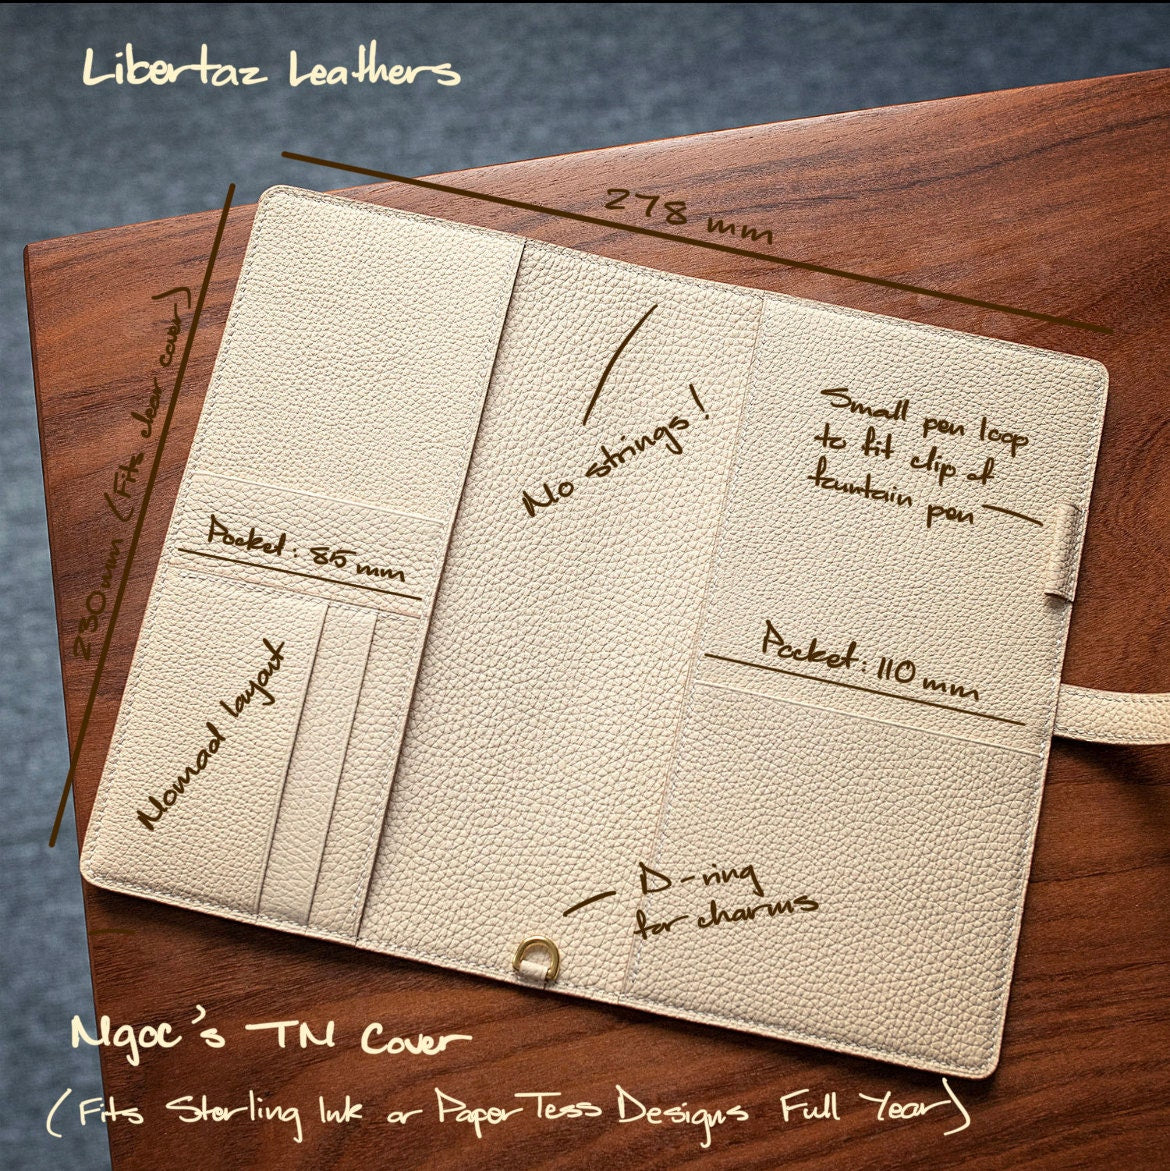 Libertaz Leathers
278 mm
230mm (Fits clear cover)
No strings!
Small pen loop
to fit clip of
fountain pen
Pocket: 85 mm
Nomad layout
Pocket: 110 mm
D-ring
for charms
Ngoc's TN Cover
(Fits Sterling Ink or PaperTess Designs Full Year)